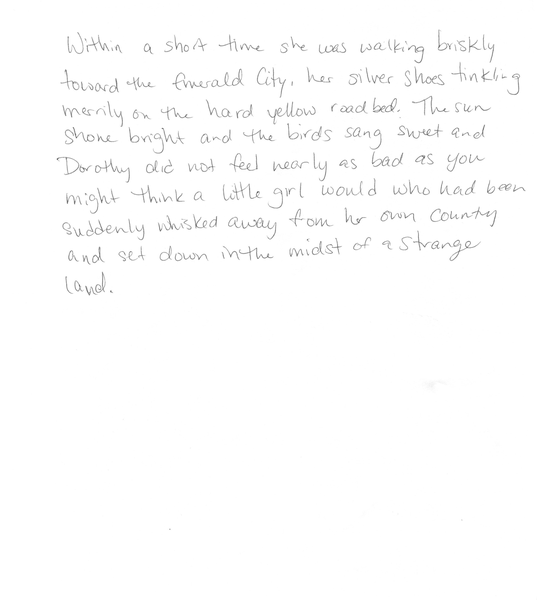 Within a short time she was walking briskly
toward the Emerald City, her silver shoes tinkling
merrily on the hard yellow road bed. The sun
shone bright and the birds sang sweet and
Dorothy did not feel nearly as bad as you
might think a little girl would who had been
suddenly whisked away from her own County
and set down in the midst of a strange
land.